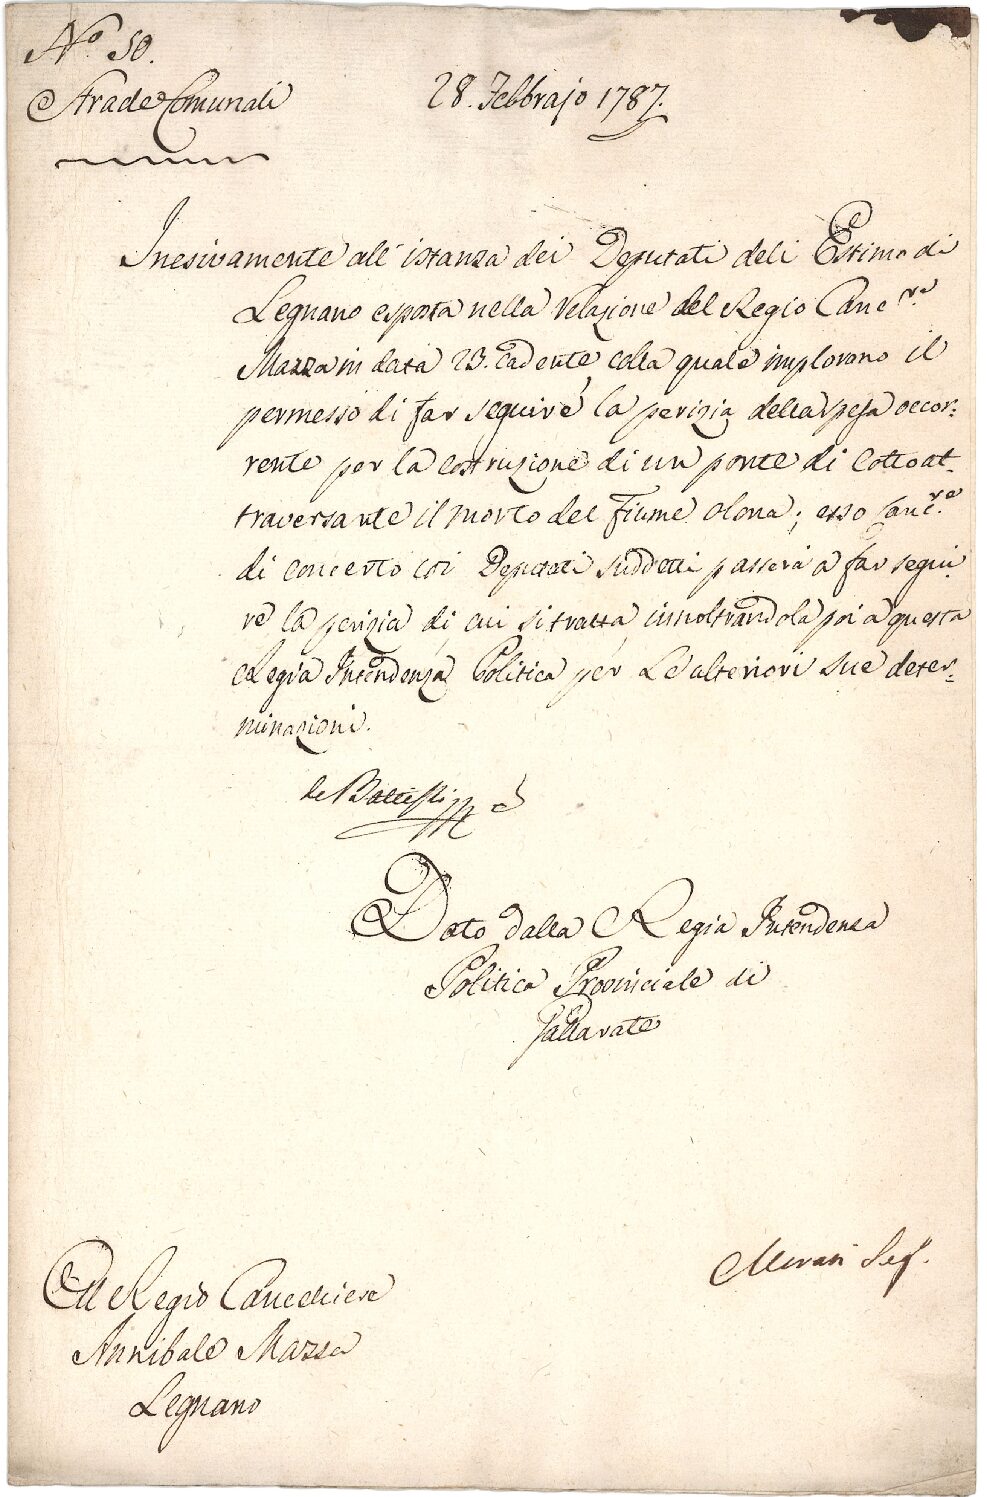 N.º 50.
Strade Comunali
28. Febbrajo 1787.
Inesivamente all' istanza dei Deputati deli Estimo di
Legnano esposta nella Relazione del Regio Canc.re
Mazza in data 23. cadente colla quale implorono il
permesso di far seguire la perizia della spesa occor:
rente per la costruzione di un ponte di Cotto at-
traversante il morto del fiume Olona; esso Canc.re
di concerto coi Deputati suddetti passerà a far segui
re la perizia di cui si tratta innoltrandola poi a questa
Regia Intendenza Politica per le ulteriori sue deter-
minazioni.
de Battisti
Dato dalla Regia Intendenza
Politica Provinciale di
Gallarate
Al Regio Cancelliere
Annibale Mazza
Legnano
Seg.